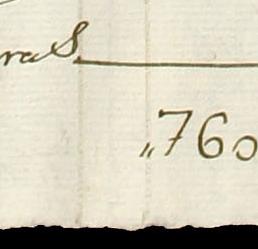 ras
„760